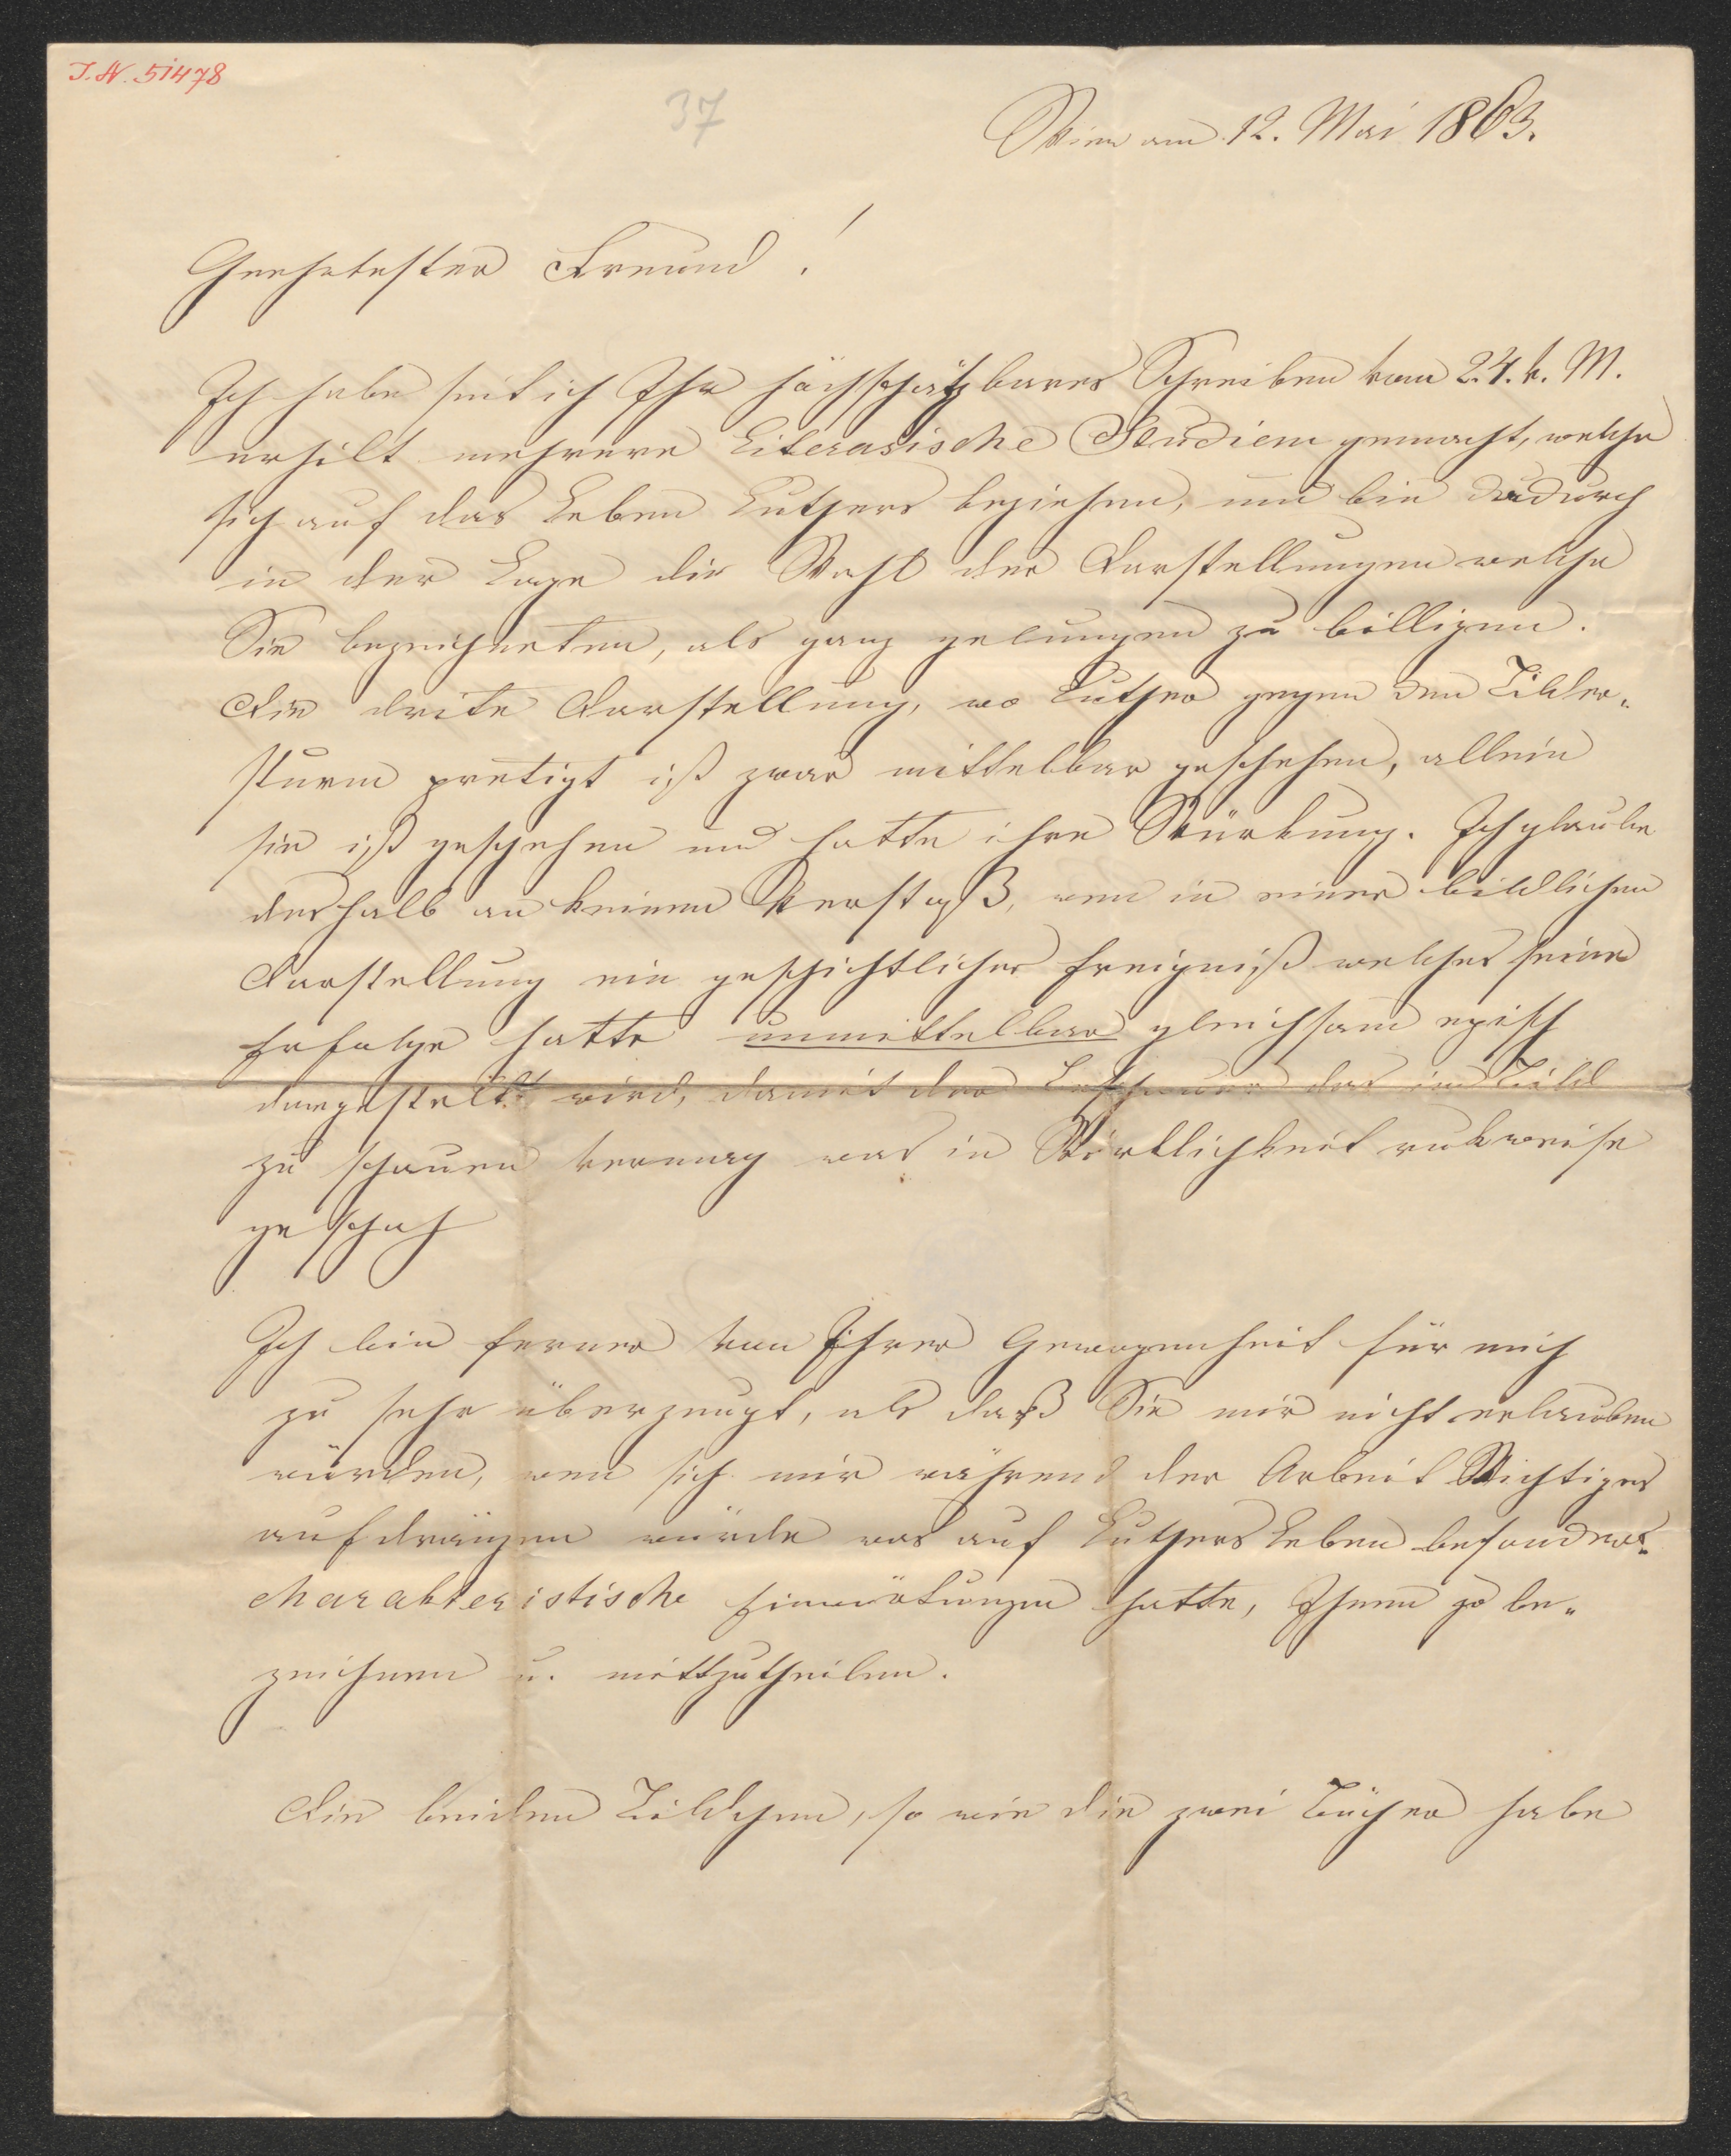 I. N. 51478
37
Wien am 12. Mai 1863.
Geehrtester Freund!
Ich habe seit ich Ihr hochschätzbares Schreiben vom 24. v. M.
erhilt mehrere Literarische Studien gemacht, welche
sich auf das Leben Luthers beziehen, und bin dadurch
in der Lage die Wahl der Darstellungen welche
Sie bezeichneten, als ganz gelungen zu billigen.
Die drite Darstellung, wo Luther gegen den Bilder„
sturm pretigt ist zwar mittelbar geschehen, allein
sie ist geschehen und hatte ihre Würkung. Ich glaube
deshalb an keinen Verstoß, wen in einer bildlichen
Darstellung ein geschichtliches Ereigniß welches seine
Erfolge hatte unmittelbar gleichsam episch
dargestellt wird, damit der Beschauer das im Bild
zu schauen vermag was in Wirklichkeit rukweise
geschah
Ich bin ferner von Ihrer Gewogenheit für mich
zu sehr überzeugt, als daß Sie mir nicht erlauben
würden, wen sich mir während der Arbeit Wichtiges
aufdrängen würde was auf Luthers Leben besonders
charakteristische Einwirkungen hatte, Ihnen zu be„
zeichnen u. mittzutheilen.
Die beiden Bildchen, so wie die zwei Bücher habe